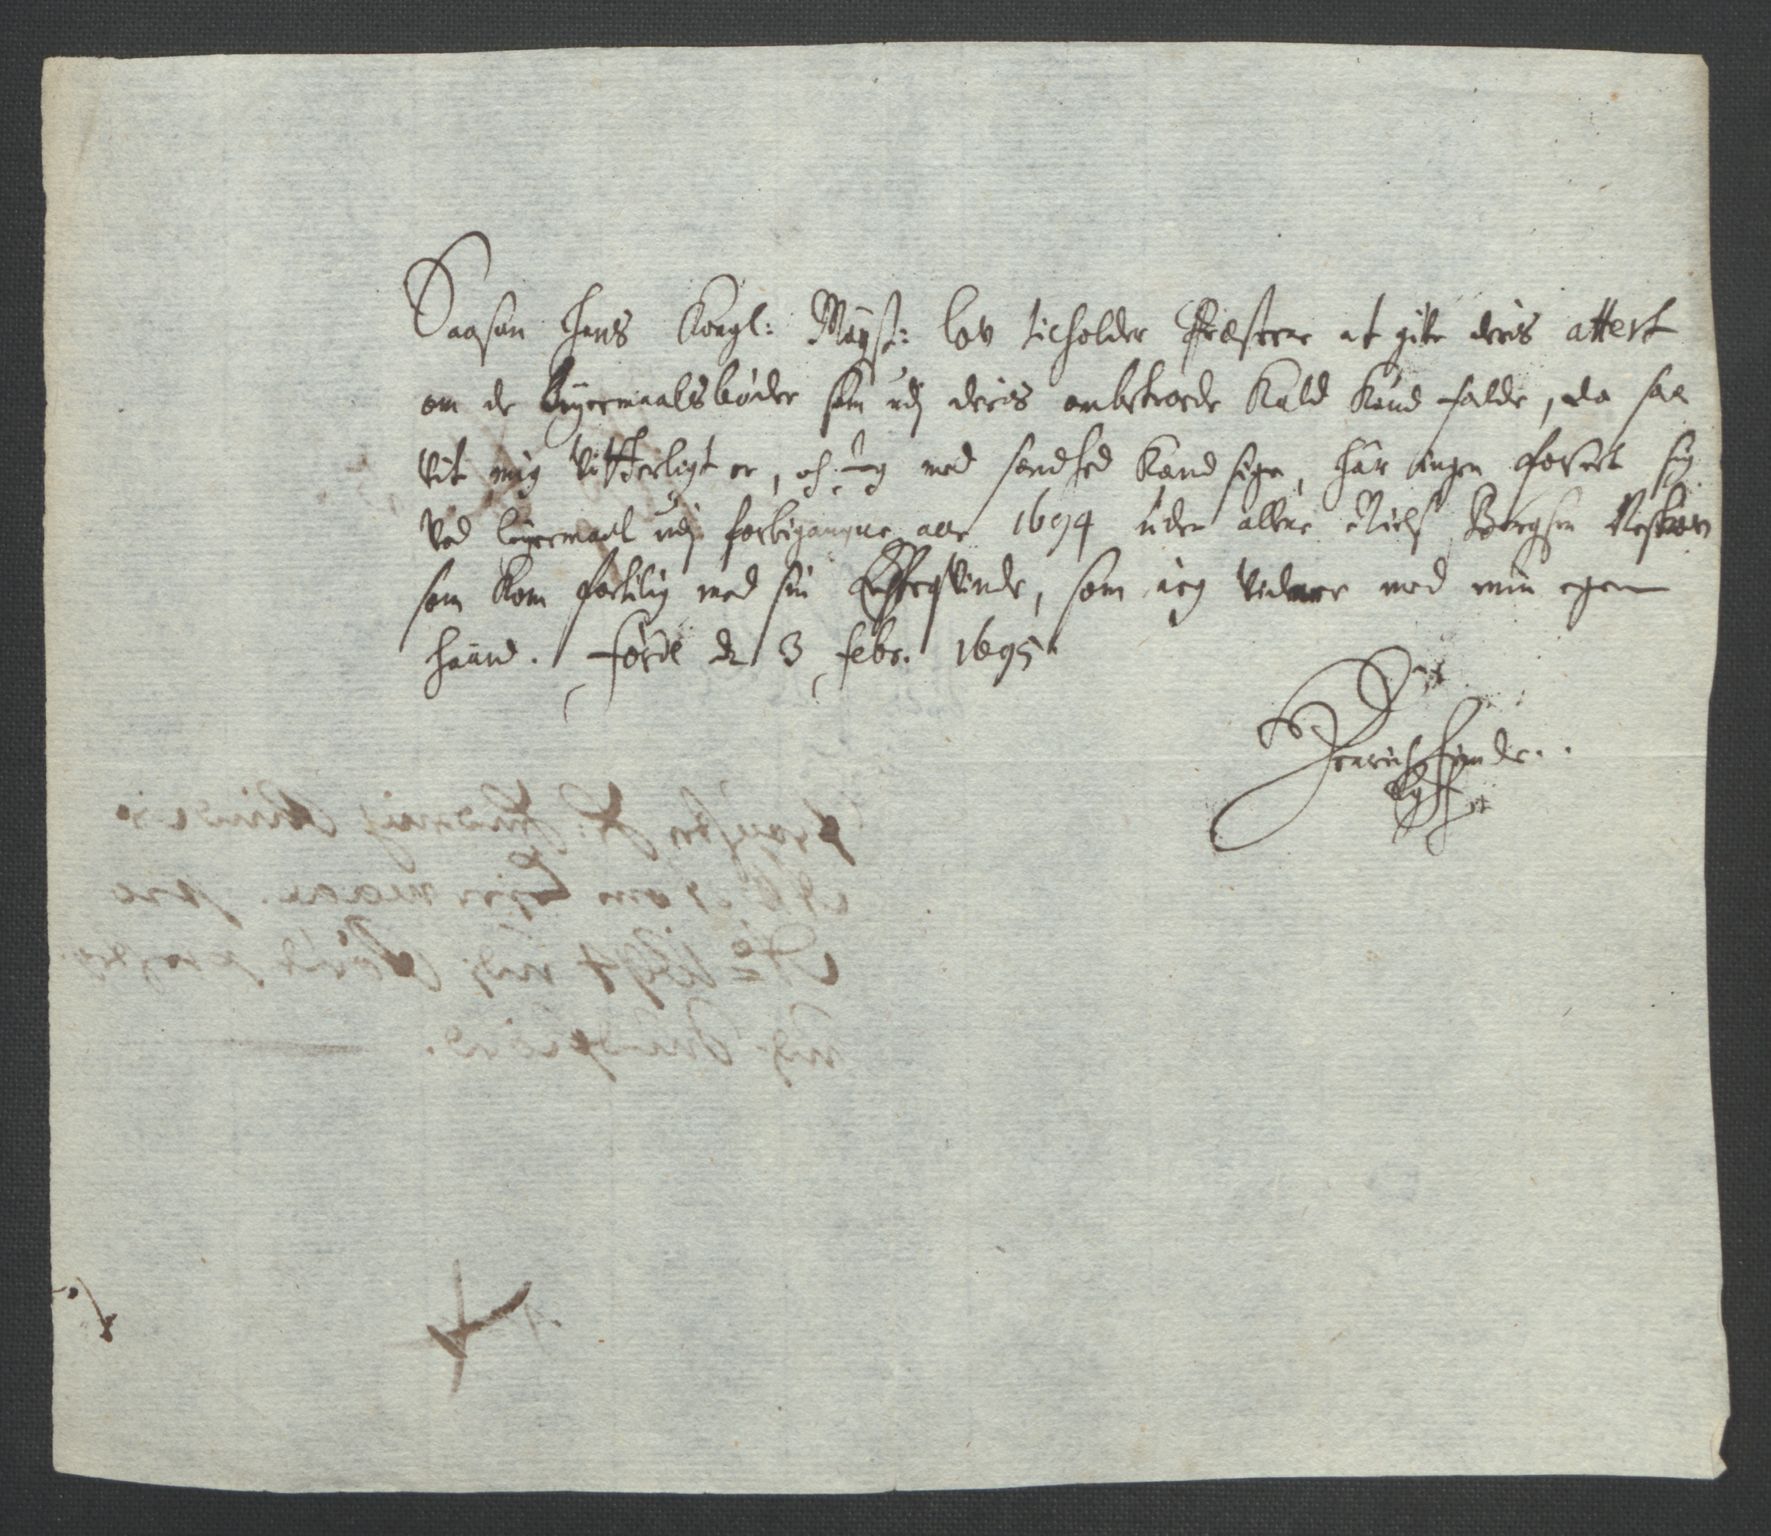 Saasom Hans Kongl: Mayst: lov tilholder Præsterne at give deris attest
om de Leyermaalsbøder som udj deris anbetroede Kald kand falde, da saa
vit mig vitterligt er, och Jeg med sandhed kand sige, har ingen forset sig
ved leyermaal udj forbigangne aar 1694 uden allene Niels
som kom for tilig med sin Egteqvinde, som ieg vidner med min egen
haand. Førde d 3 febr. 1695
Henrich